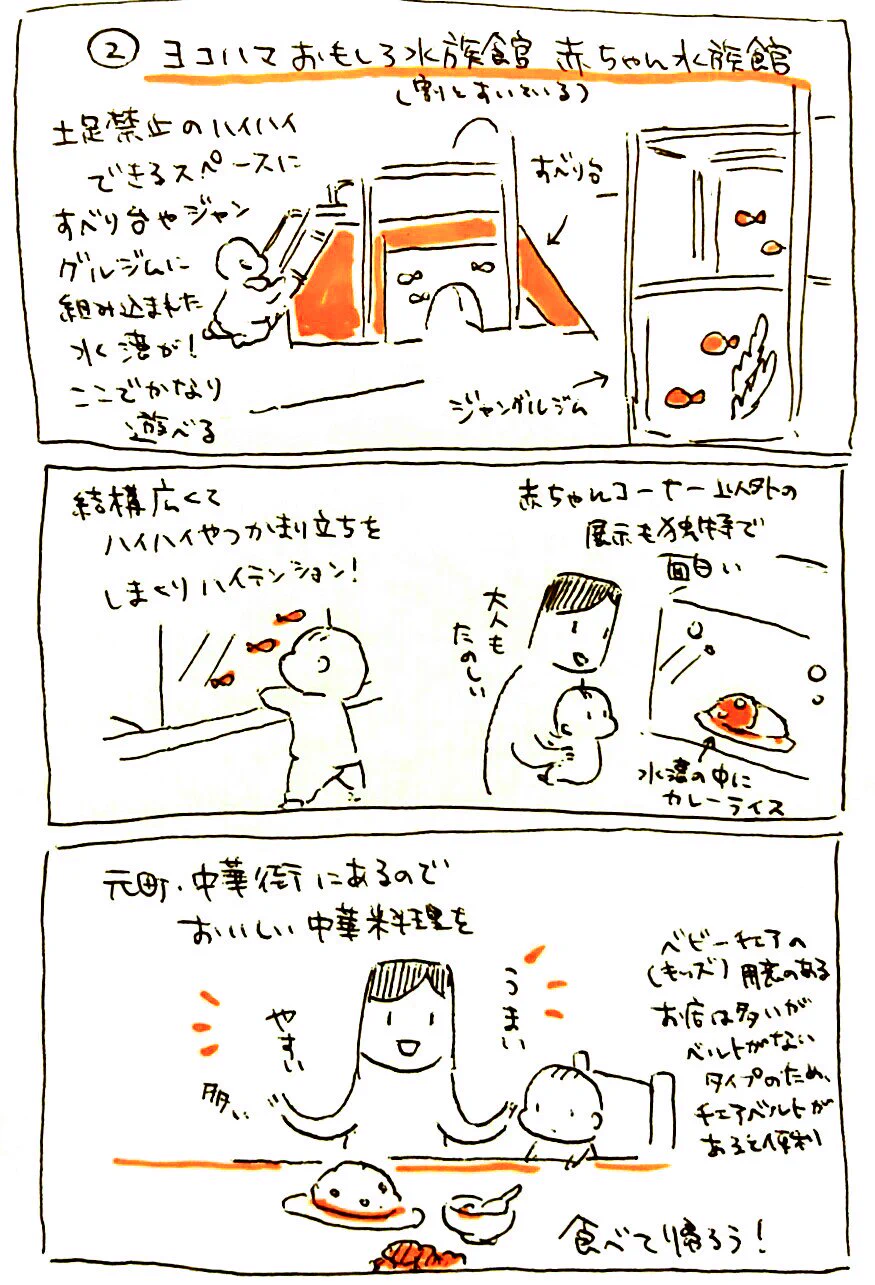 ② ヨコハマおもしろ水族館 赤ちゃん水族館
(割とすいている)
土足禁止のハイハイ
できるスペースに
すべり台やジャン
グルジムに
組み込まれた
水漕が!
ここでかなり
遊べる
すべり台
ジャングルジム
結構広くて
ハイハイやつかまり立ちを
しまくりハイテンション!
赤ちゃんコーナー以外の
展示も独特で
面白い
大人も
たのしい
水漕の中に
カレーライス
元町・中華街にあるので
おいしい中華料理を
うまい
やすい
多い
ベビーチェアの
(キッズ)用意のある
お店は多いが
ベルトがない
タイプのため、
チェアベルトが
あると便利
食べて帰ろう!